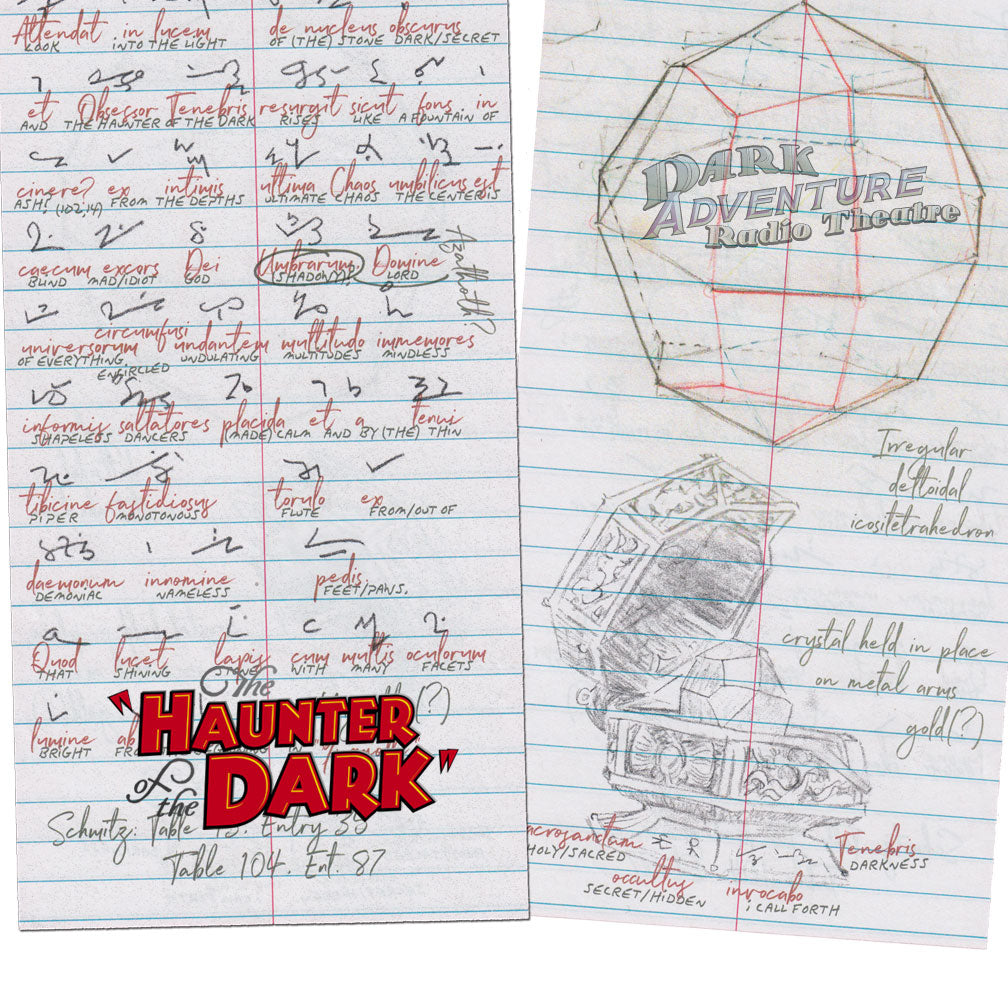 Attendat in lucem de nucleus obscurus
LOOK INTO THE LIGHT OF (THE) STONE DARK/SECRET
et Obsessor Tenebris resurgit sicut fons in
AND THE HAUNTER OF THE DARK RISES LIKE A FOUNTAIN OF
cinere? ex intimis ultima Chaos umbilicus est
ASH? (102,14) FROM THE DEPTHS ULTIMATE CHAOS THE CENTER IS
caecum excors Dei Umbrarum Domine
BLIND MAD/IDIOT GOD (SHADOW)? LORD
Azathoth?
universorum circumfusi undantem multitudo immemores
OF EVERYTHING, ENCIRCLED UNDULATING MULTITUDES MINDLESS
informis saltatores placida et a tenui
SHAPELESS DANCERS (MADE) CALM AND BY (THE) THIN
tibicine fastidiosus torulo ex
PIPER MONOTONOUS FLUTE FROM/OUT OF
daemonum innomine pedis.
DEMONIAC NAMELESS FEET/PAWS.
Quod lucet lapis cum multis oculorum
THAT SHINING STONE WITH MANY FACETS
(?)
lumine
BRIGHT
The
"HAUNTER
of the DARK"
Schmitz: Table Entry 35
Table 104. Ent. 87
DARK
ADVENTURE
Radio Theatre
Irregular
deltoidal
icositetrahedron
crystal held in place
on metal arms
gold(?)
Tenebris
HOLY/SACRED DARKNESS
occultus invocabo
SECRET/HIDDEN i CALL FORTH